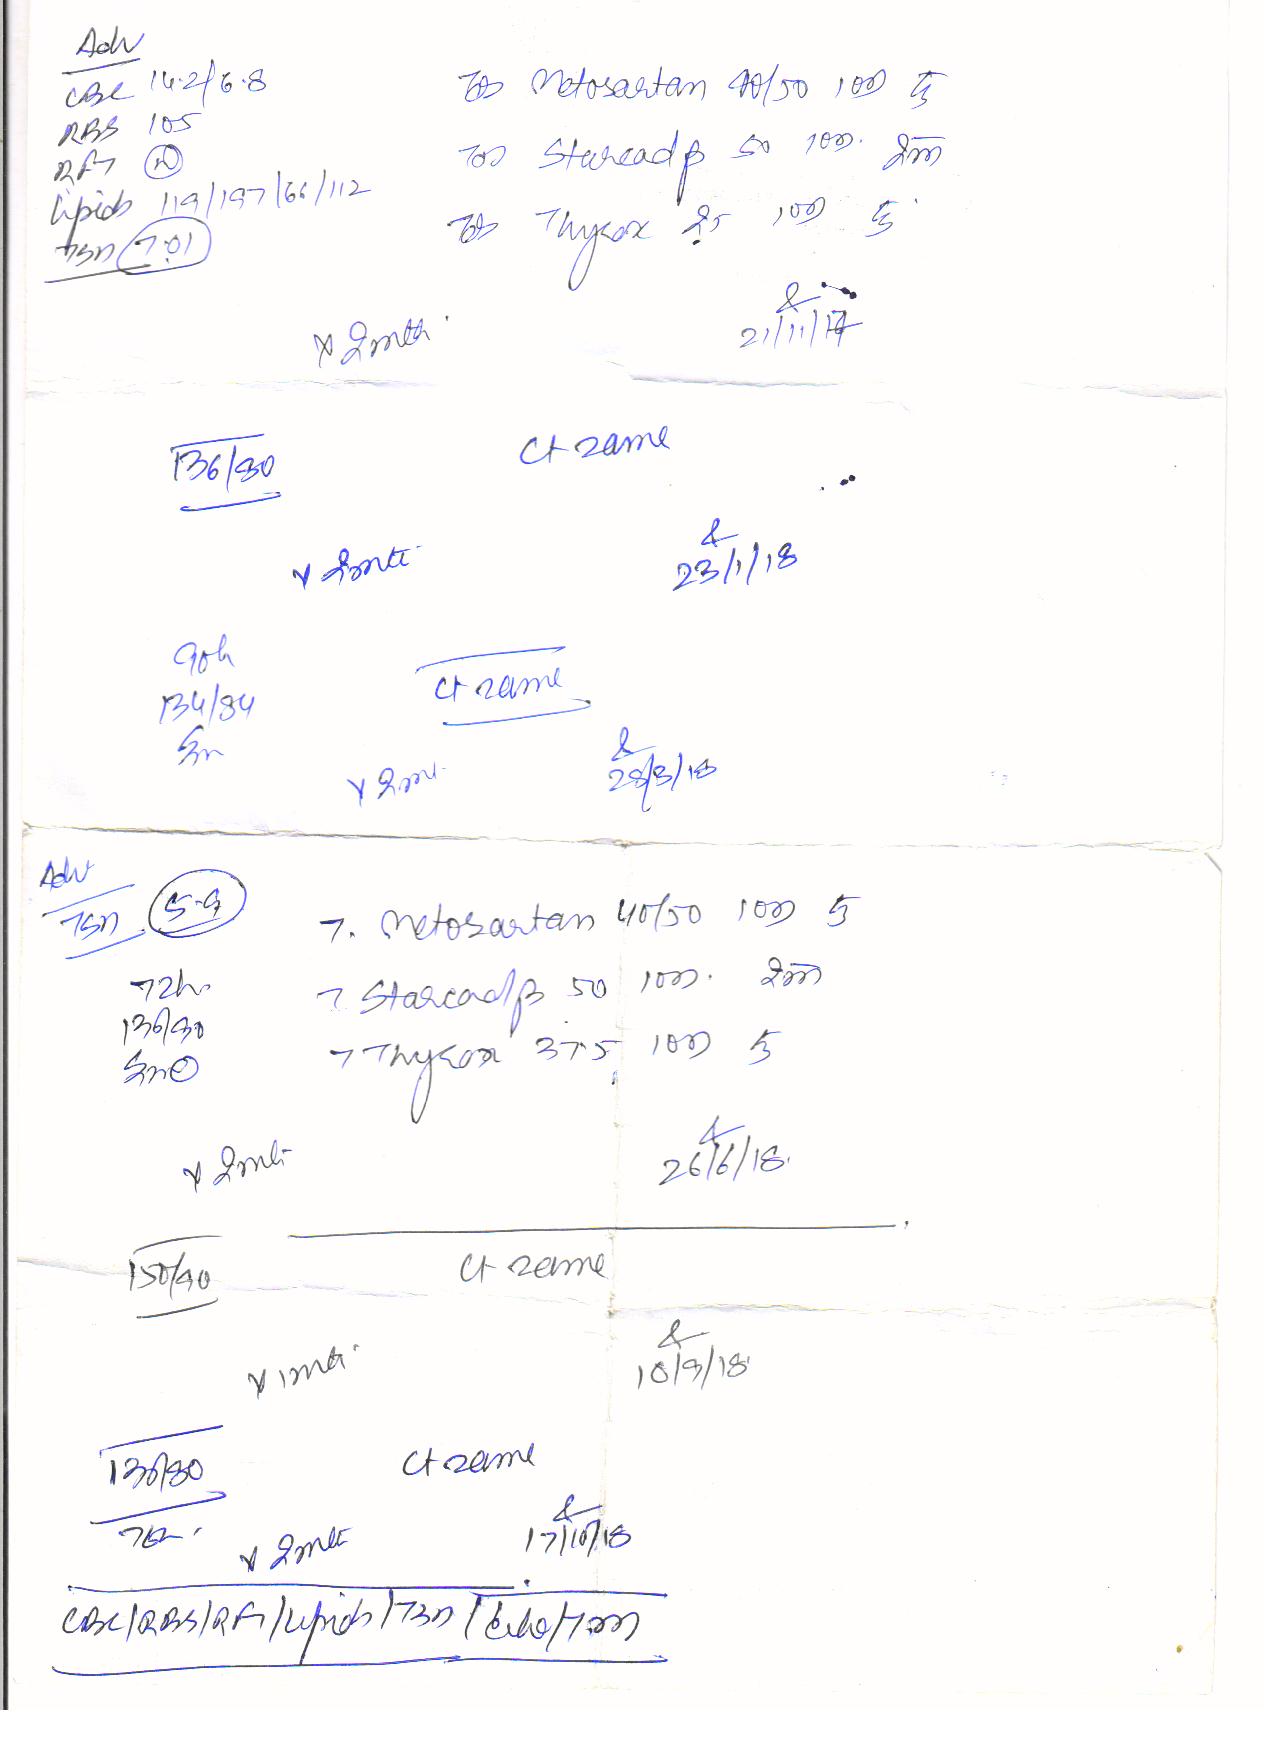 Adv
CBC 14.2/6.8
RBS 105
RFT (N)
Lipids 119/197/66/112
TSH 7.01
Tab Metosartan 40/50 1OD
Tab Starcad β 50 1OD
Tab Thyrox 25 1OD
x 2mth
21/11/17
136/80
Ct same
x 2mth
23/1/18
90h
134/84
Ct same
x 2mt
28/3/18
Adv
TSH 5.9
T. Metosartan 40/50 1OD
72h
T Starcad β 50 1OD
136/90
T Thyrox 37.5 1OD
x 2mth
26/6/18
150/90
Ct same
x 1mth
10/9/18
136/80
Ct same
x 2mth
17/10/18
CBC/RBS/RFT/Lipids/TSH/Echo/